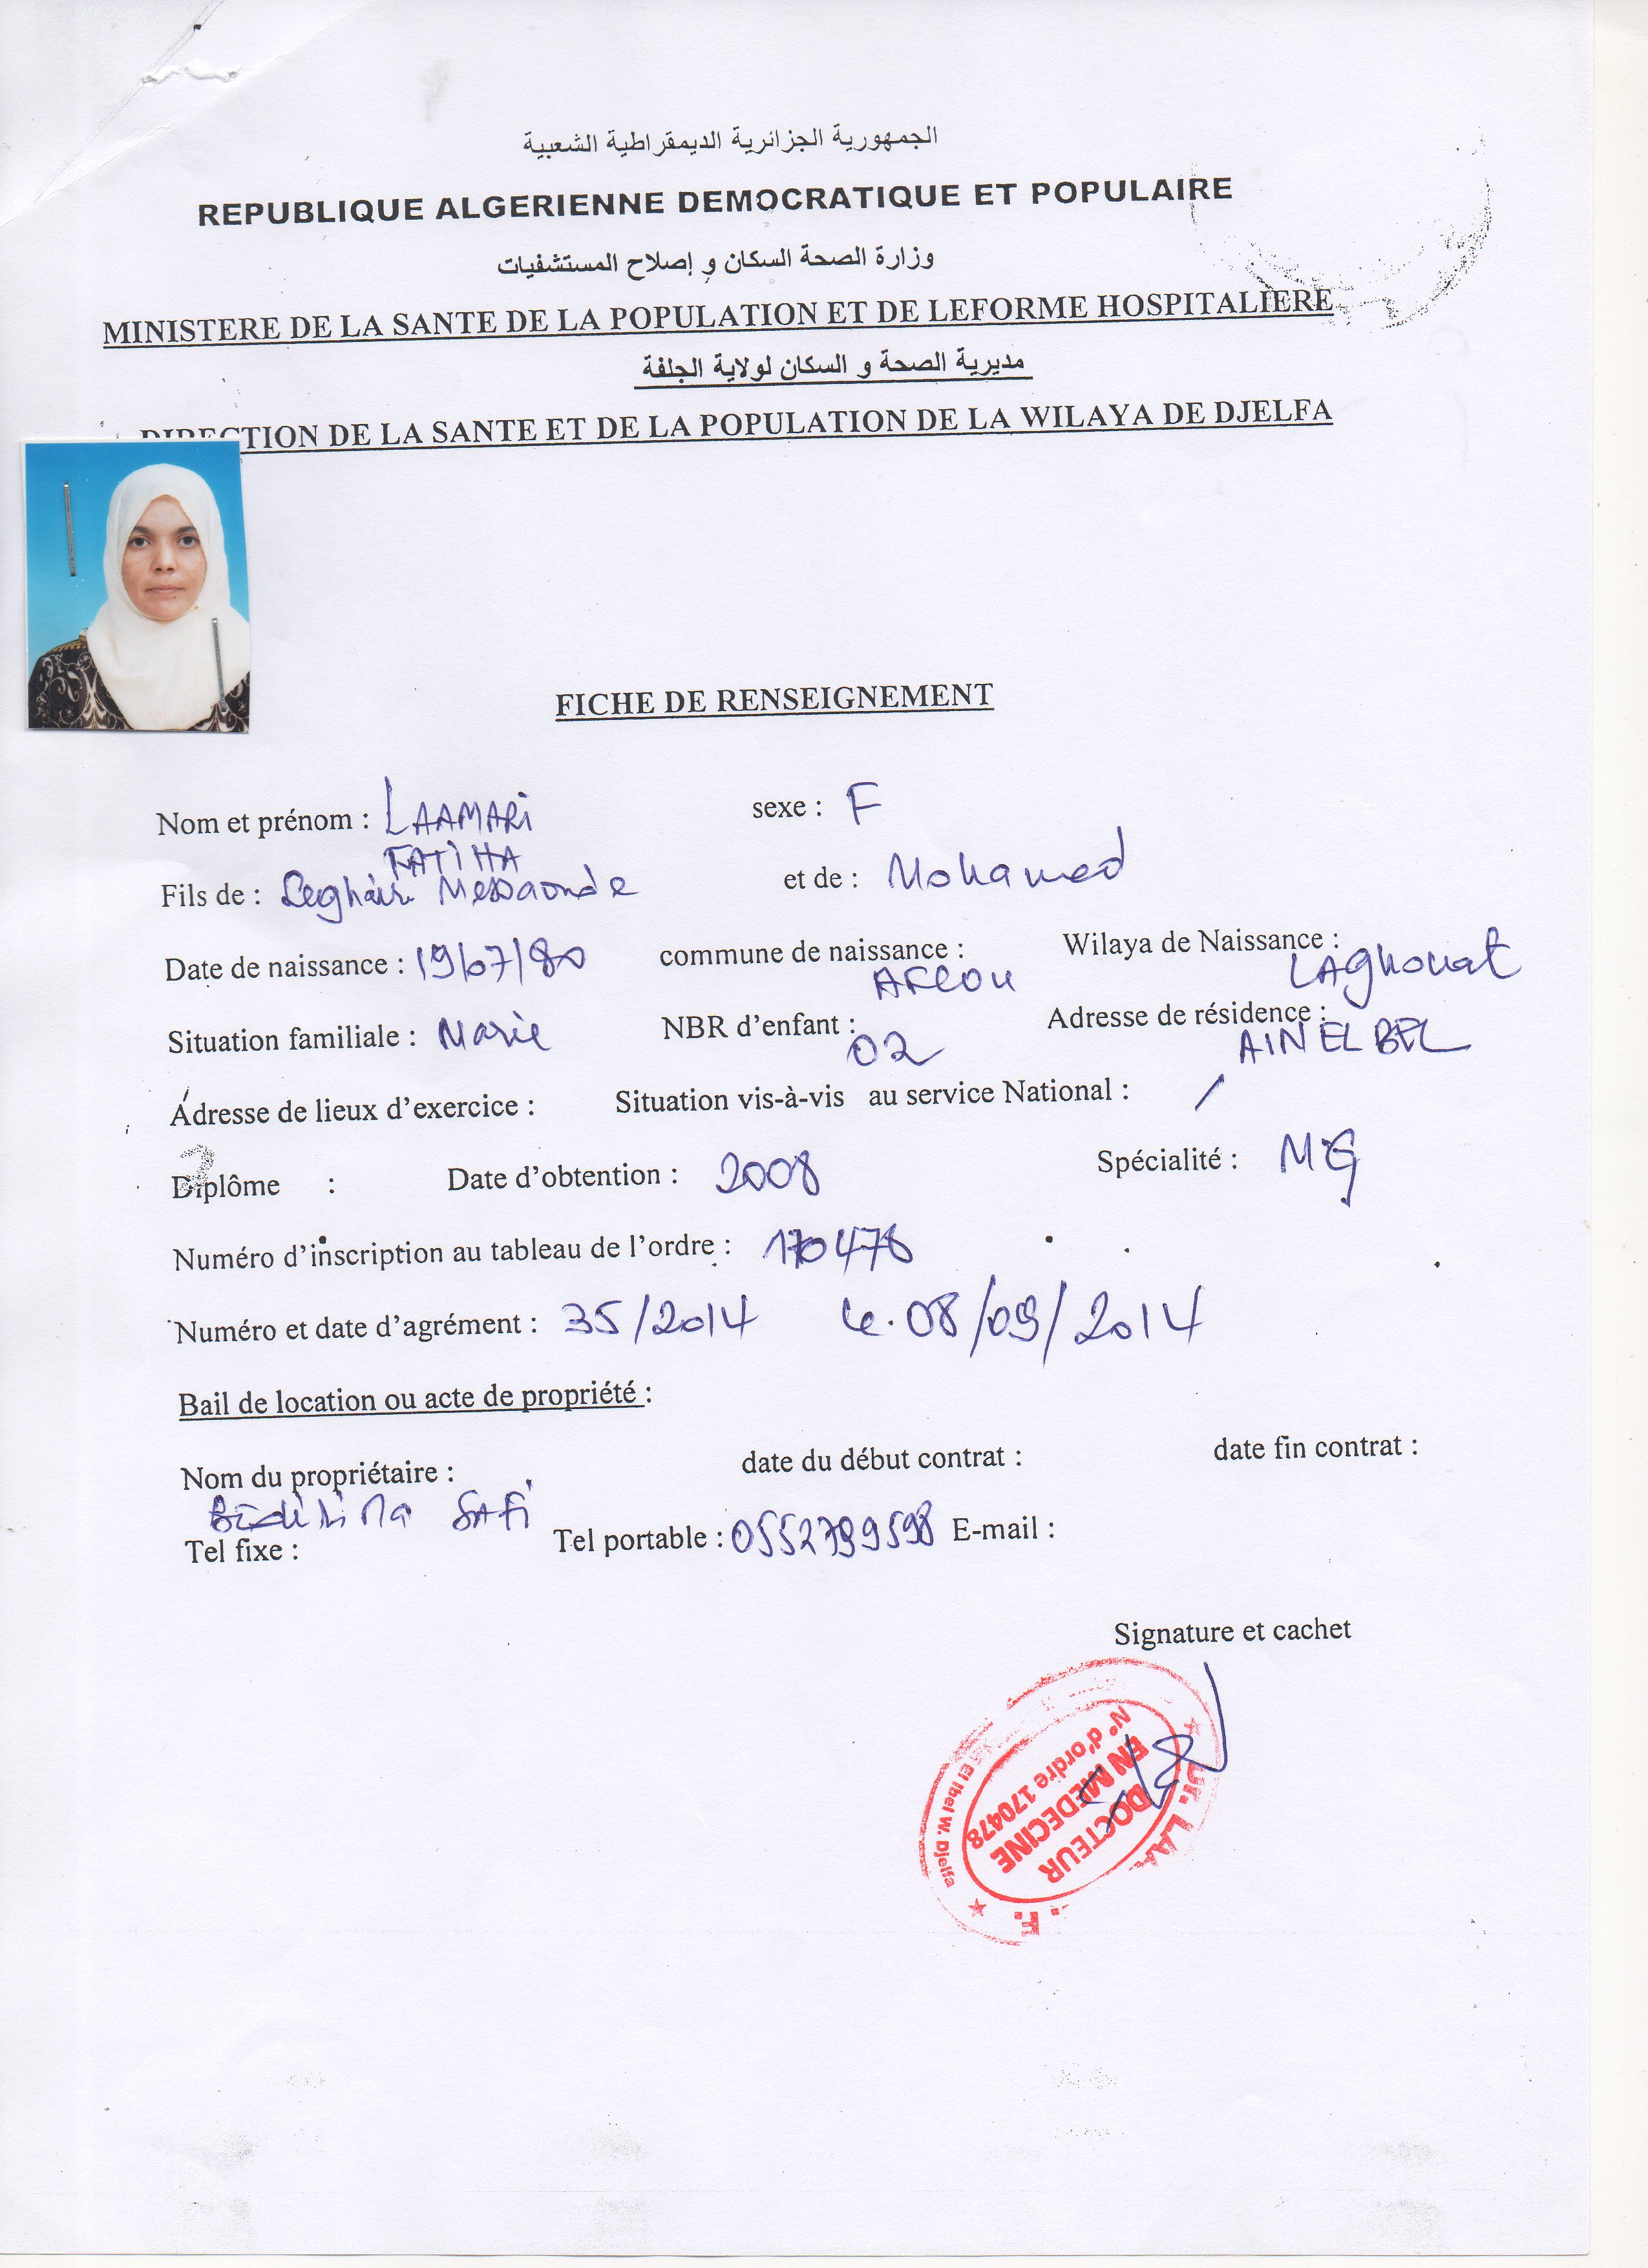 الجمهورية الجزائرية الديمقراطية الشعبية
REPUBLIQUE ALGERIENNE DEMOCRATIQUE ET POPULAIRE
وزارة الصحة السكان و إصلاح المستشفيات
MINISTERE DE LA SANTE DE LA POPULATION ET DE LEFORME HOSPITALIERE
مديرية الصحة و السكان لولاية الجلفة
DIRECTION DE LA SANTE ET DE LA POPULATION DE LA WILAYA DE DJELFA
FICHE DE RENSEIGNEMENT
Nom et prénom : LAAMARI FATIHA sexe : F
Fils de : Messaouda et de : Mohamed
Date de naissance : 19/07/80 commune de naissance : AFLOU Wilaya de Naissance : LAghouat
Situation familiale : Marie NBR d'enfant : 02 Adresse de résidence : AIN EL BEL
Adresse de lieux d'exercice : Situation vis-à-vis au service National : /
Diplôme : Date d'obtention : 2008 Spécialité : MG
Numéro d'inscription au tableau de l'ordre : 170478
Numéro et date d'agrément : 35/2014 le 08/09/2014
Bail de location ou acte de propriété :
Nom du propriétaire : SAFI date du début contrat : date fin contrat :
Tel fixe : Tel portable : E-mail :
Signature et cachet
DOCTEUR
EN MEDECINE
N° d'ordre 170478
El Ibel W. Djelfa